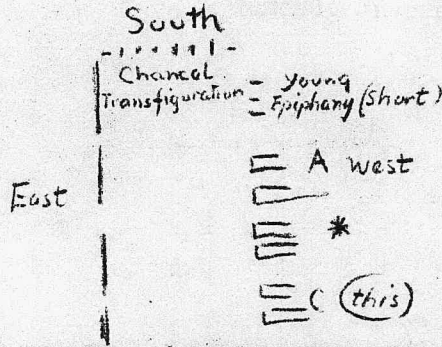 South
Chancel
Transfiguration
Young
Epiphany (short)
A west
East
*
C (this)